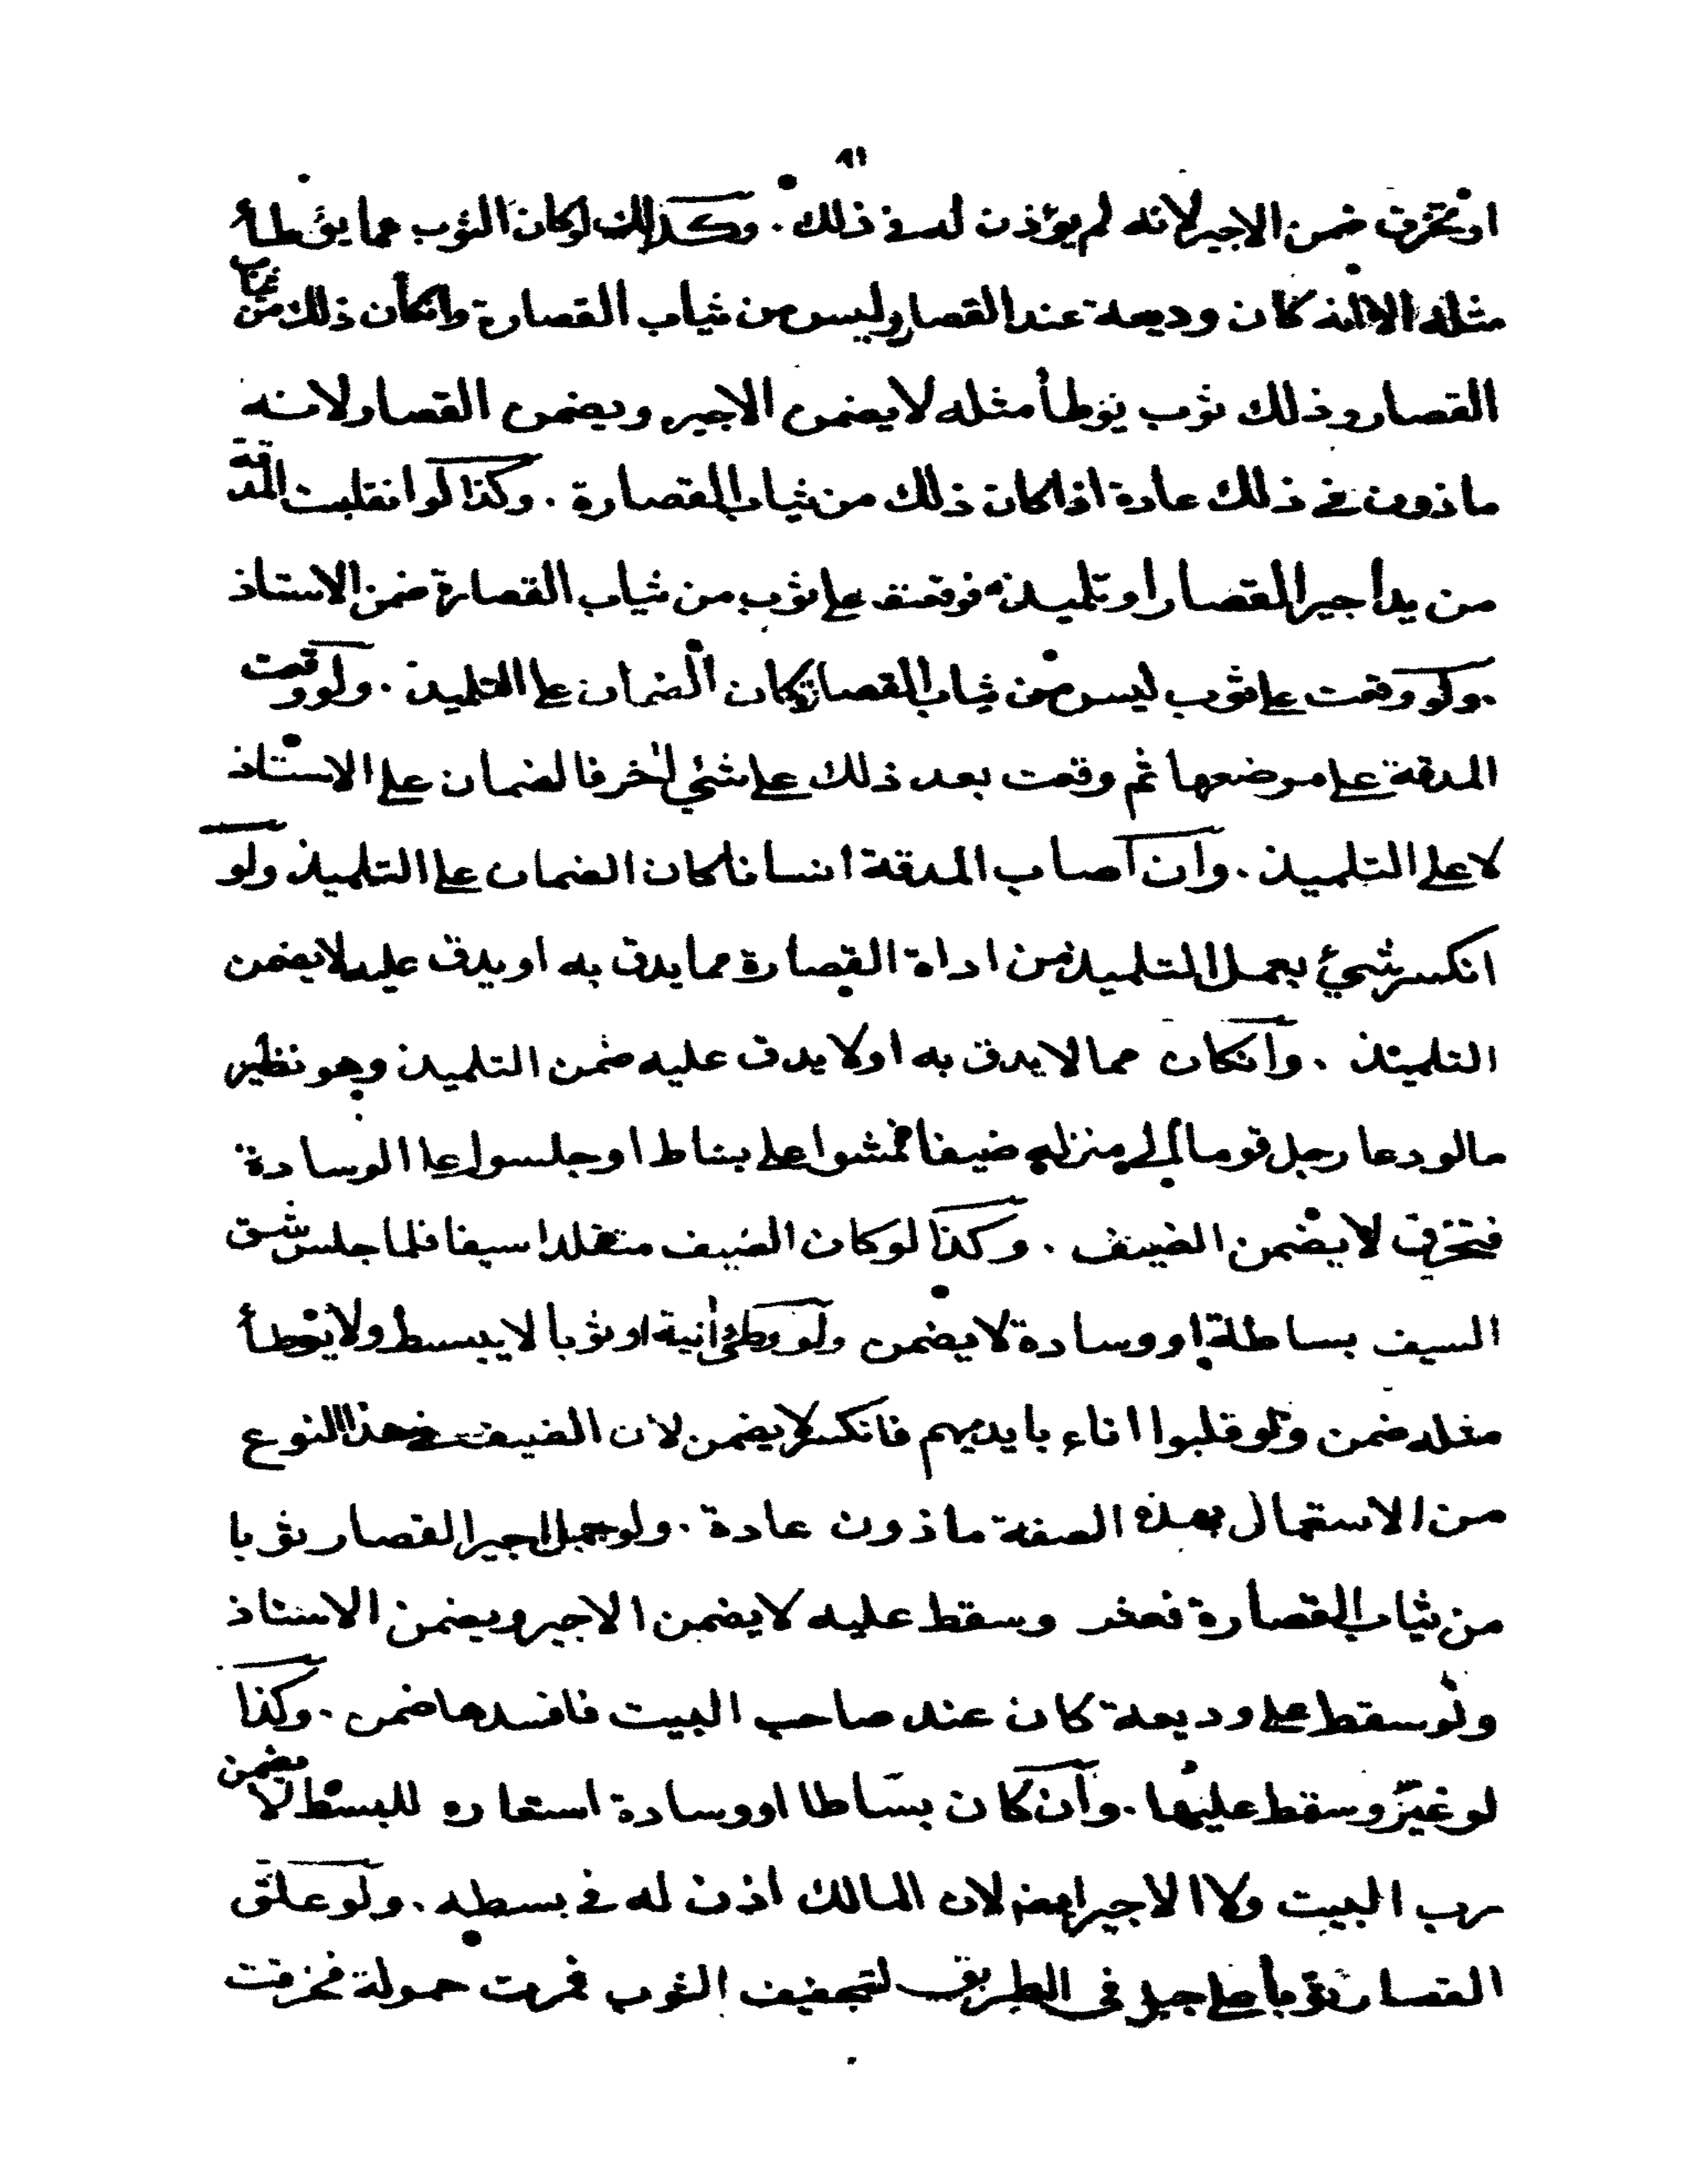 ٩١
او تخرق ضمن الاجير لانه لم يؤذن له في ذلك . وكذلك لو كان الثوب مما يؤطأ
مثله الا انه كان وديعة عند القصار وليس من ثياب القصارة وانكان ذلك من ثياب
القصار وذلك ثوب يؤطأ مثله لا يضمن الاجير ويضمن القصار لانه
ماذون في ذلك عادة اذا كان ذلك من ثياب القصارة . وكذا لو انقلبت المدقة
من يد اجير القصار او تلميذه فوقعت على ثوب من ثياب القصارة ضمن الاستاذ
. ولو وقعت على ثوب ليس من ثياب القصارة كان الضمان على التلميذ . ولو وقعت
المدقة على موضعها ثم وقعت بعد ذلك على شئي اخر فالضمان على الاستاذ
لا على التلميذ . وان اصاب المدقة انسانا كان الضمان على التلميذ ولو
انكسر شيئ بعمل التلميذ من اداة القصارة مما يدق به او يدق عليه لا يضمن
التلميذ . وانكان مما لا يدق به اولا يدق عليه ضمن التلميذ وهو نظير
مالو دعا رجل قوما الى منزله ضيفا فمشوا على بساط او جلسوا على الوسادة
فتخرق لا يضمن الضيف . وكذا لو كان الضيف متقلدا سيفا فلما جلس شق
السيف بساطا او وسادة لا يضمن ولو وطئ انية او ثوبا لا يبسط ولا يؤطأ
مثله ضمن ولو قلبوا اناء بايديهم فانكسر لا يضمن لان الضيف في هذا النوع
من الاستعمال بهذه الصفة ماذون عادة . ولو حمل اجير القصار ثوبا
من ثياب القصارة فعثر وسقط عليه لا يضمن الاجير ويضمن الاستاذ
ولو سقط على وديعة كان عند صاحب البيت فافسدها ضمن . وكذا
لو عثر وسقط عليها . وان كان بساطا او وسادة استعاره للبسط لا يضمن
رب البيت ولا الاجير ايضا لان المالك اذن له في بسطه . ولو علق
القصار ثوبا على حبل في الطريق لتجفيف الثوب فمرت حمولة فخرقت